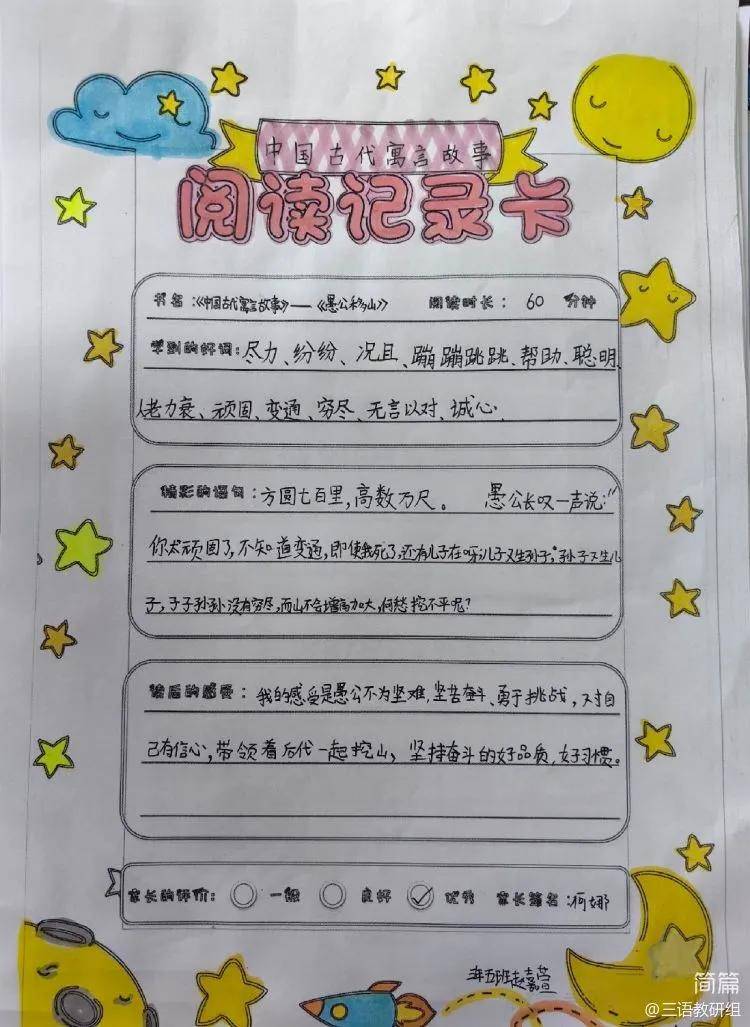 中国古代寓言故事
阅读记录卡
书名:《中国古代寓言故事》——《愚公移山》 阅读时长: 60 分钟
学到的好词:尽力、纷纷、况且、蹦蹦跳跳、帮助、聪明、
人老力衰、顽固、变通、穷尽、无言以对、诚心、
精彩的语句:方圆七百里,高数万尺。 愚公长叹一声说:“
你太顽固了,不知道变通,即使我死了,还有儿子在呀,儿子又生孙子,孙子又生儿
子,子子孙孙没有穷尽,而山不会增高加大,何愁挖不平呢?
读后的感受:我的感受是愚公不为坚难,坚苦奋斗、勇于挑战,对自
己有信心,带领着后代一起挖山,坚持奋斗的好品质,好习惯。
家长的评价: 一般 良好 ✓ 优秀 家长签名:何娜
五班赵嘉萱
简篇
@三语教研组